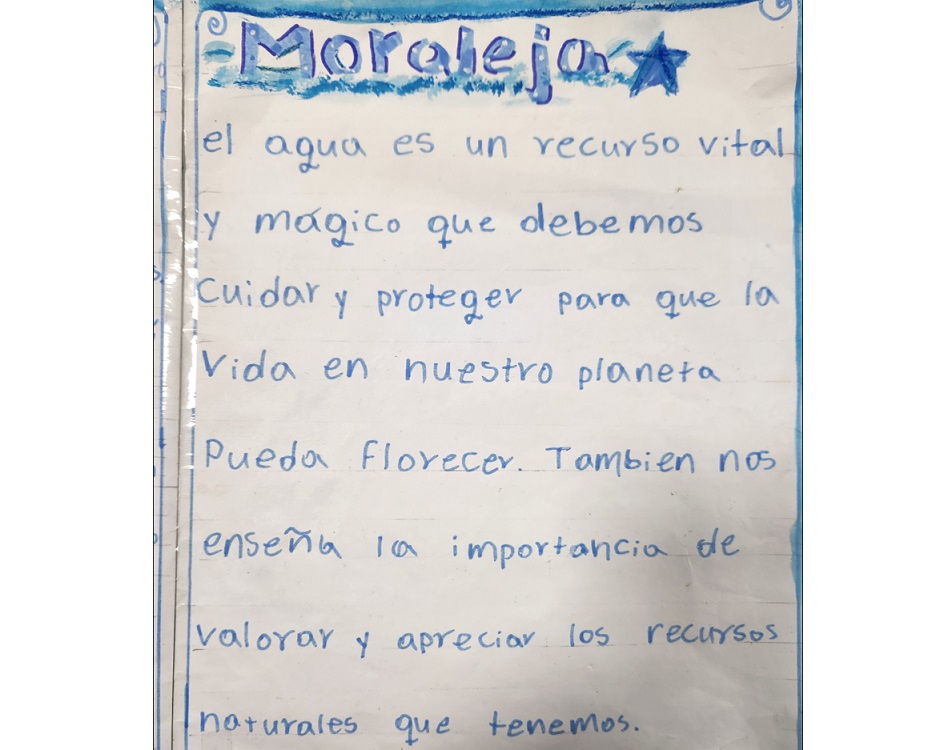 Moraleja
el agua es un recurso vital
y mágico que debemos
Cuidar y proteger para que la
Vida en nuestro planeta
Pueda Florecer. Tambien nos
enseña la importancia de
valorar y apreciar los recursos
naturales que tenemos.